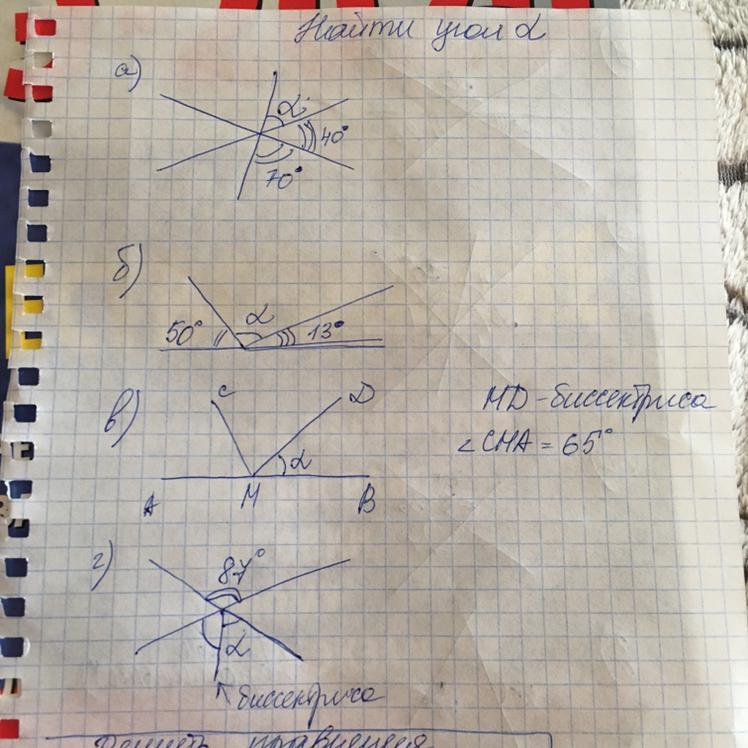 Найти угол α
а)
α
40°
70°
б)
50° α 13°
в) C D MD - биссектриса
α ∠CMA = 65°
A M B
г)
87°
α
биссектриса
Решить уравнения